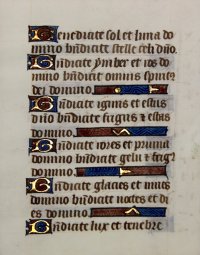 Benedicite sol et luna do
mino bndicite stelle celi dno.
Bndicite ymber et ros do
mino bndicite omnis spirit
dei domino.
Bndicite ignis et estus
dno bndicite frigus et estas
domino.
Bndicite rores et pruina
domino bndicite gelu et frig
domino.
Bndicite glacies et niues
domino bndicite noctes et di
es domino.
Bndicite lux et tenebre